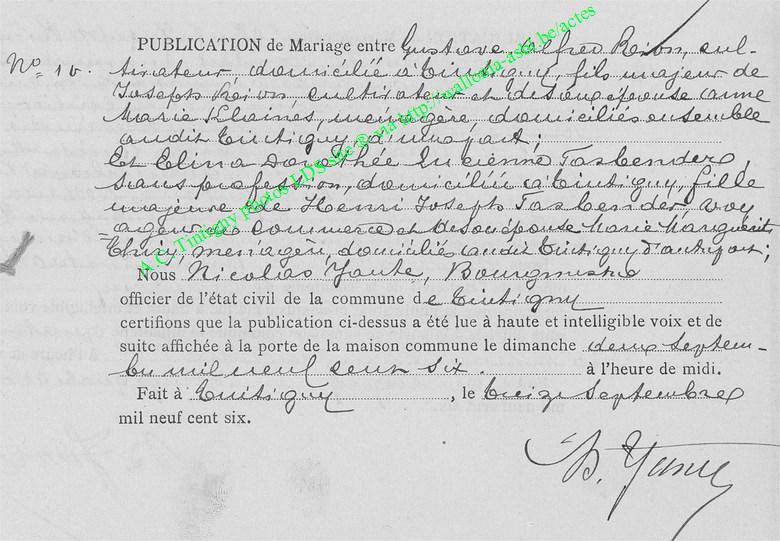 PUBLICATION de Mariage entre Gustave Alfred Rion, cul-
No 10. tivateur domicilié à Tintigny, fils majeur de
Joseph Rion, cultivateur et de son épouse Anne
Marie Klaines, ménagère, domiciliés ensemble
audit Tintigny, d'une part;
Et Elina Dorothée Lucienne Fasbender,
sans profession, domiciliée à Tintigny, fille
majeure de Henri Joseph Fasbender voy
ageur de commerce et de son épouse Marie Marguerite
ménagère, domiciliés audit Tintigny d'autre part;
Nous Nicolas Yante, Bourgmestre
officier de l'état civil de la commune de Tintigny
certifions que la publication ci-dessus a été lue à haute et intelligible voix et de
suite affichée à la porte de la maison commune le dimanche deux septem-
bre mil neuf cent six. à l'heure de midi.
Fait à Tintigny, le treize septembre
mil neuf cent six.
N. Yante
A.C. Tintigny photos LDS site ® via http://wallonia-asbl.be/actes